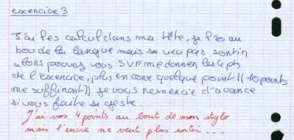 exercice 3
J'ai les calcul dans ma tête, je l'ai au
bout de la langue mais sa veu pas sortir
alors pouvez vous SVP me donner les 4 pts
de l'exercice, plus encore quelque point (( 10 points
me suffiront)) je vous remercie d'avance
si vous faite se geste
J'ai vos 4 points au bout de mon stylo
mais l'encre ne veut plus sortir ...